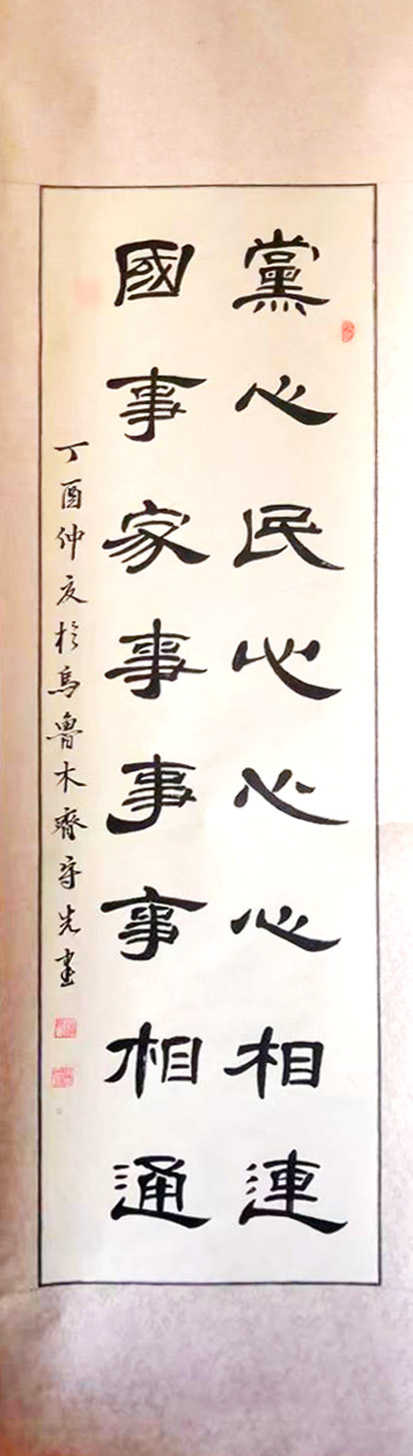 黨心民心心心相連
國事家事事事相通
丁酉仲夏於烏魯木齊守先書